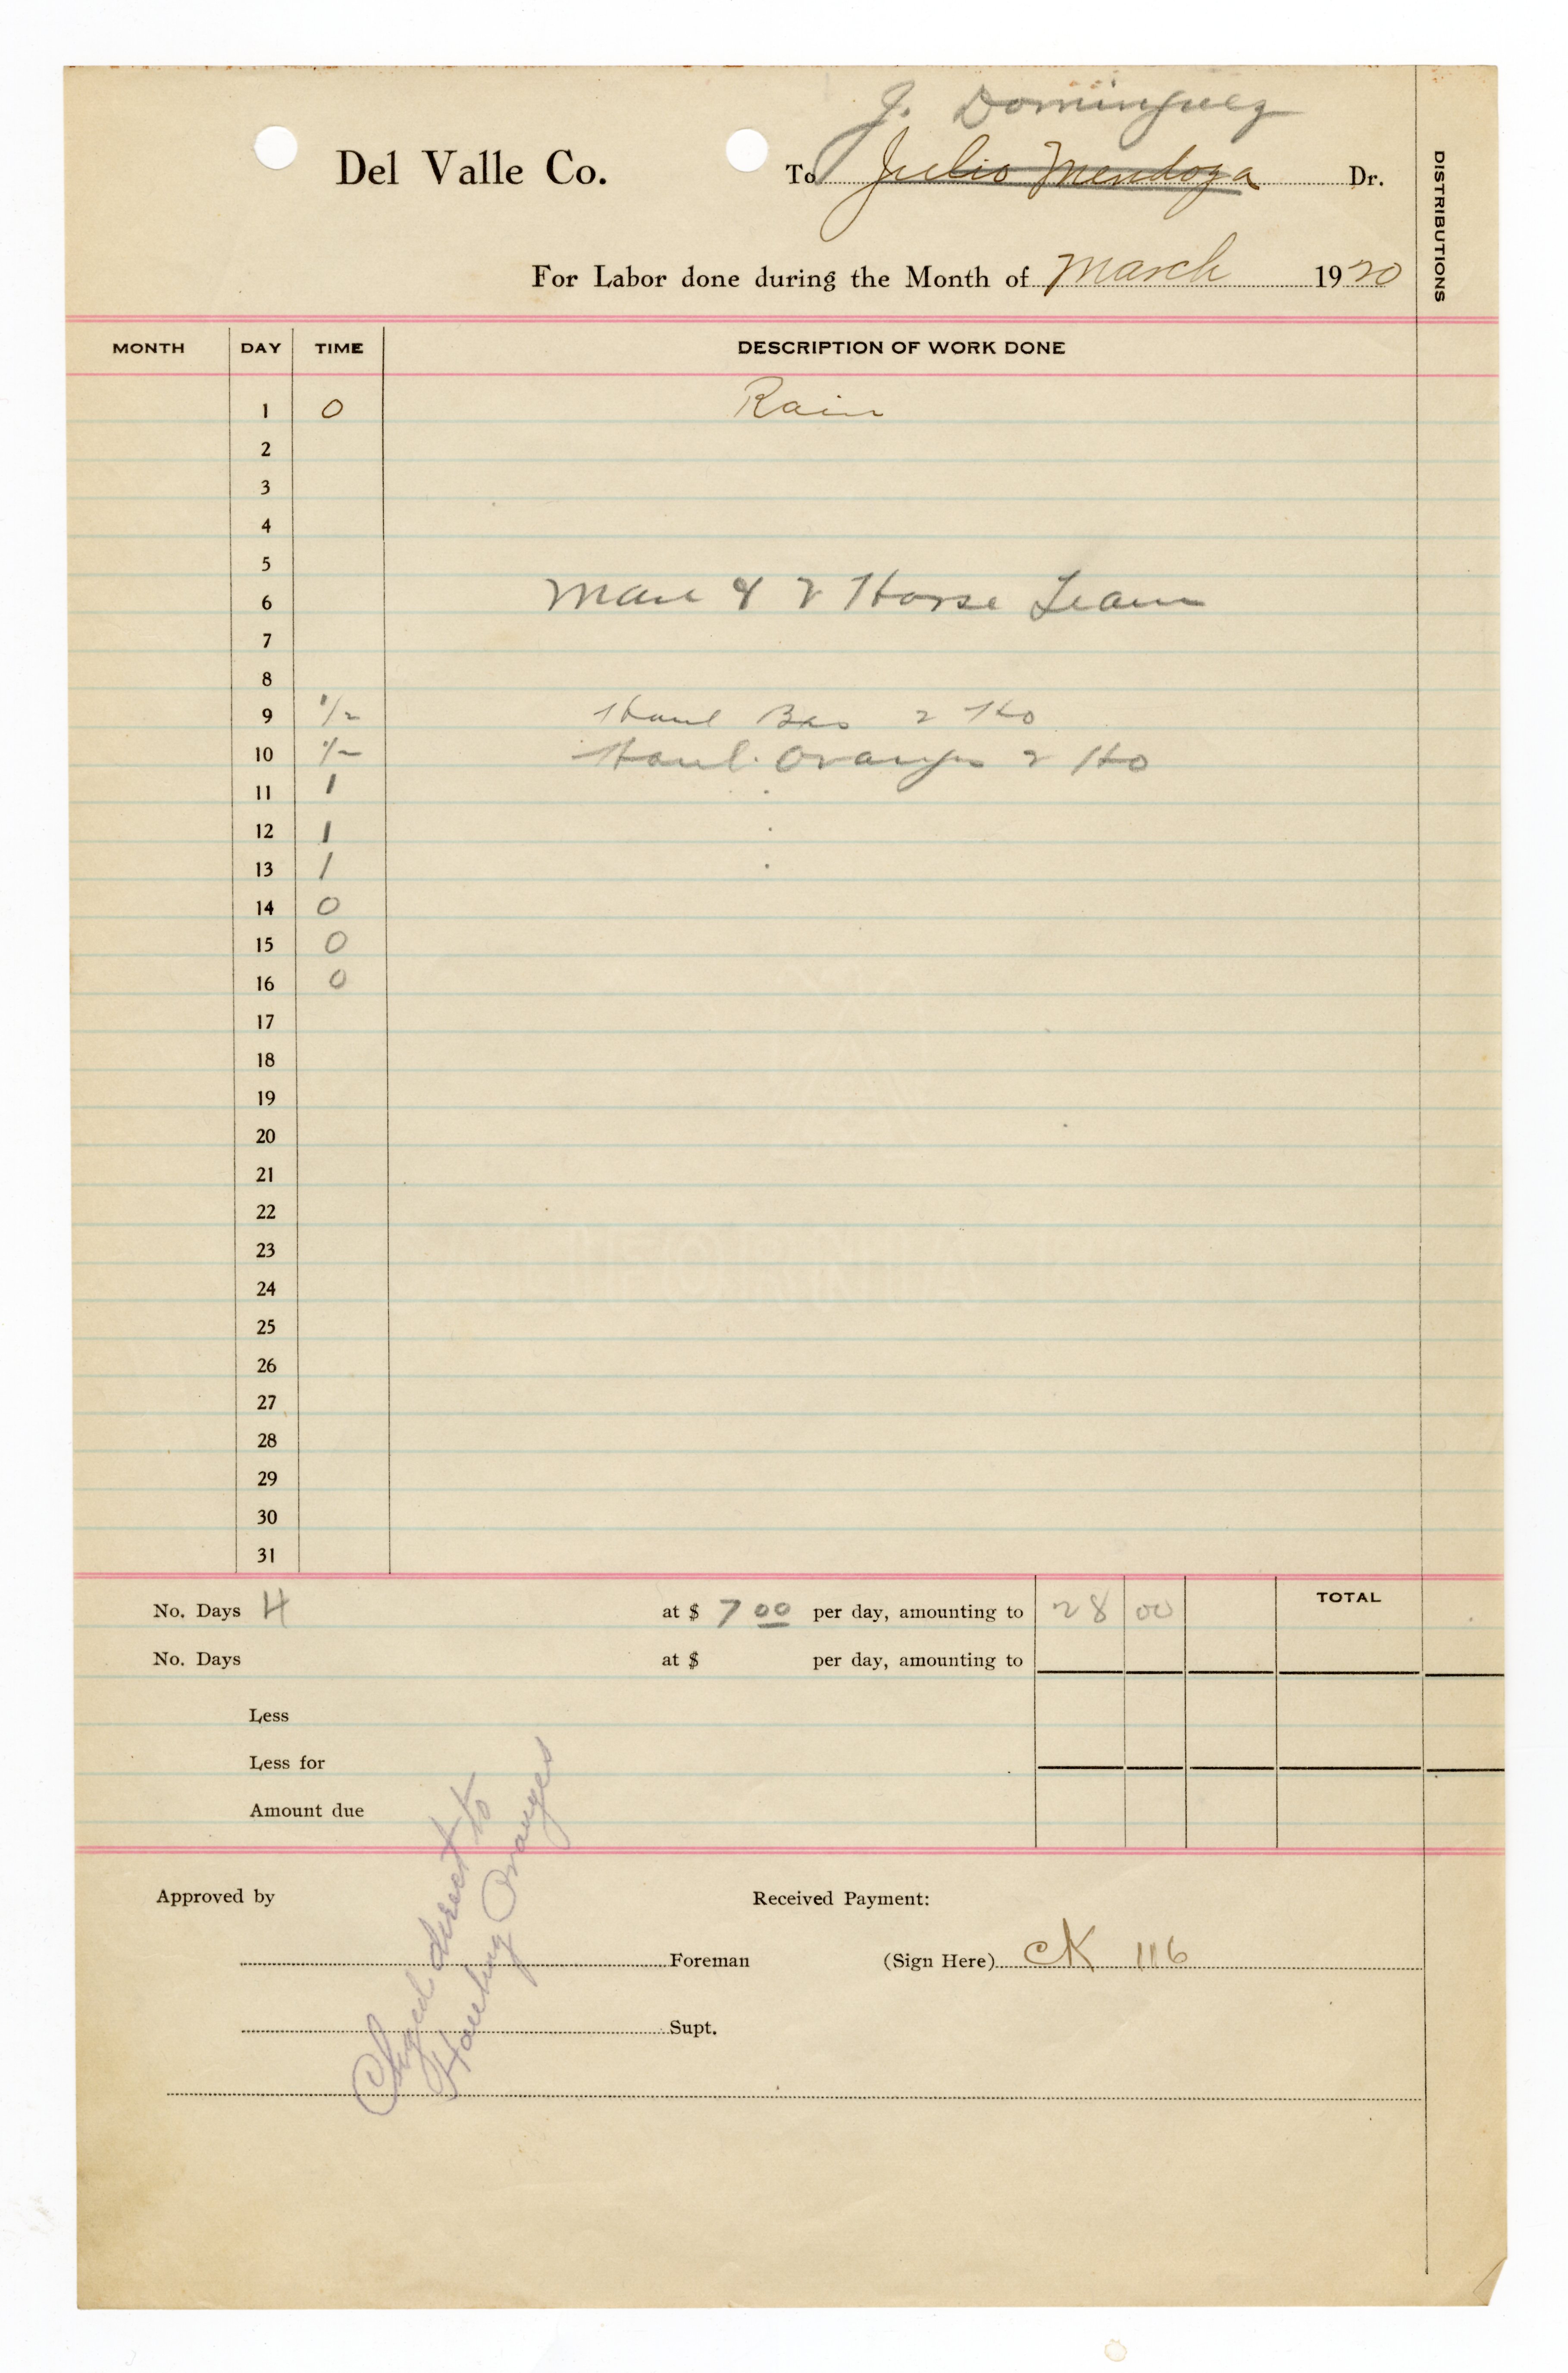 J. Dominguez
Del Valle Co. To Julio Mendoza Dr.
DISTRIBUTIONS
For Labor done during the Month of March 1920
MONTH DAY TIME DESCRIPTION OF WORK DONE
1 0 Rain
2
3
4
5
6 Man & 2 Horse Team
7
8
9 1/2 Haul 2 Ho
10 1/2 Haul Oranges 2 Ho
11 1
12 1
13 1
14 0
15 0
16 0
17
18
19
20
21
22
23
24
25
26
27
28
29
30
31
No. Days 4 at $ 7 00 per day, amounting to 28 00 TOTAL
No. Days at $ per day, amounting to
Less
Less for
Amount due
Approved by Received Payment:
Foreman (Sign Here) CK 116
Supt.
Chged direct to
Hauling Oranges